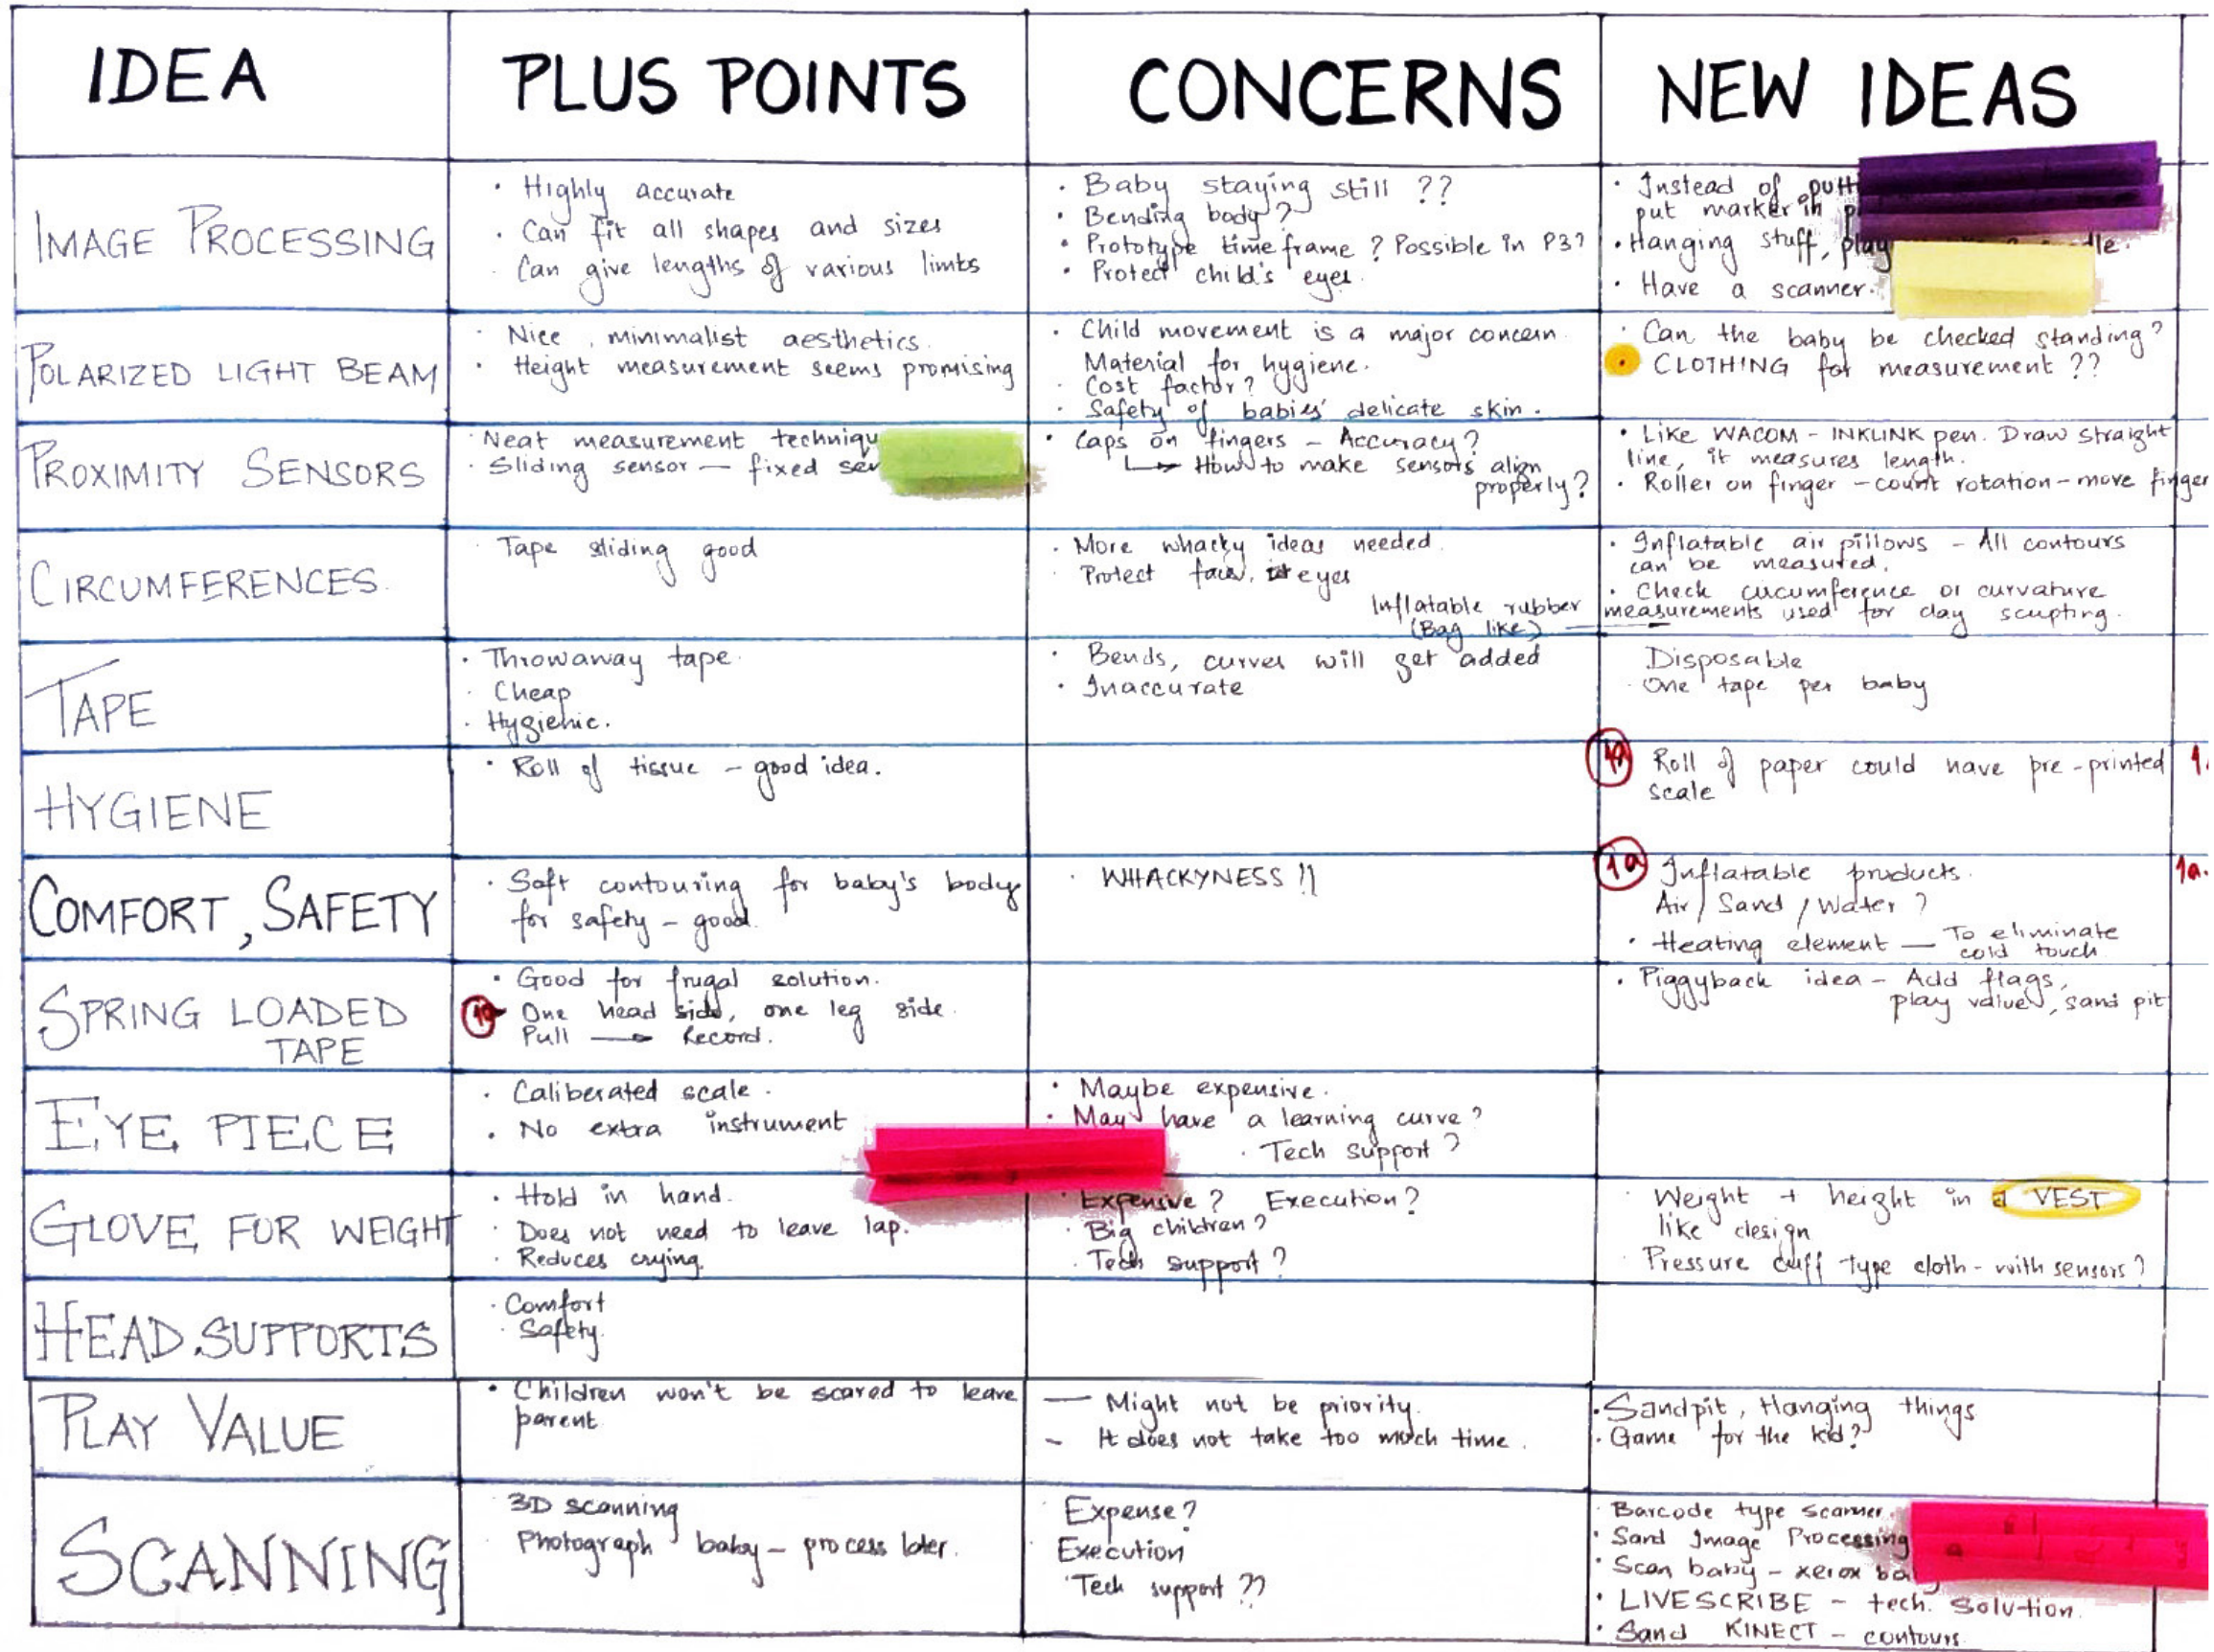 IDEA
PLUS POINTS
CONCERNS
NEW IDEAS
IMAGE PROCESSING
· Highly accurate
· Can fit all shapes and sizes
· Can give lengths of various limbs
· Baby staying still ??
· Bending body?
· Prototype time frame ? Possible in P3?
· Protect child's eyes.
· Instead of
put marker in
· Hanging stuff, play
· Have a scanner.
POLARIZED LIGHT BEAM
· Nice, minimalist aesthetics.
· Height measurement seems promising
· Child movement is a major concern.
Material for hygiene.
· Cost factor?
· Safety of babies' delicate skin.
· Can the baby be checked standing?
· CLOTHING for measurement ??
PROXIMITY SENSORS
· Neat measurement
· Sliding sensor — fixed
· Caps on fingers – Accuracy?
↳ How to make sensors align
properly?
· Like WACOM – INKLINK pen. Draw straight
line, it measures length.
· Roller on finger – count rotation – move finger
CIRCUMFERENCES.
· Tape sliding good
· More whacky ideas needed.
· Protect face, eyes
Inflatable rubber
(Bag like)
· Inflatable air pillows – All contours
can be measured.
· Check cucumference or curvature
measurements used for clay sculpting.
TAPE
· Throwaway tape.
· Cheap
· Hygienic.
· Bends, curves will get added
· Inaccurate
Disposable
· One tape per baby
HYGIENE
· Roll of tissue – good idea.
Roll of paper could have pre-printed
scale
1.
COMFORT, SAFETY
· Soft contouring for baby's body
for safety – good.
· WHACKYNESS !!
1a Inflatable products.
Air / Sand / Water ?
· Heating element — To eliminate
cold touch.
1a.
SPRING LOADED
TAPE
· Good for frugal solution.
One head side, one leg side.
Pull → Record.
· Piggyback idea – Add flags,
play value, sand pit
EYE PIECE
· Caliberated scale.
· No extra instrument
· Maybe expensive.
· May have a learning curve?
· Tech support ?
GLOVE FOR WEIGHT
· Hold in hand.
· Does not need to leave lap.
· Reduces crying.
· Expensive ? Execution?
· Big children?
· Tech support ?
· Weight + height in a VEST
like design
· Pressure cuff type cloth – with sensors?
HEAD SUPPORTS
· Comfort
· Safety.
PLAY VALUE
· Children won't be scared to leave
parent.
— Might not be priority.
– It does not take too much time.
· Sandpit, Hanging things
· Game for the kid?
SCANNING
· 3D scanning
· Photograph baby – process later.
· Expense?
Execution
· Tech support ??
· Barcode type scanner.
· Sand Image Processing
· Scan baby – xerox
· LIVESCRIBE – tech. solution.
· Sand KINECT – contours.